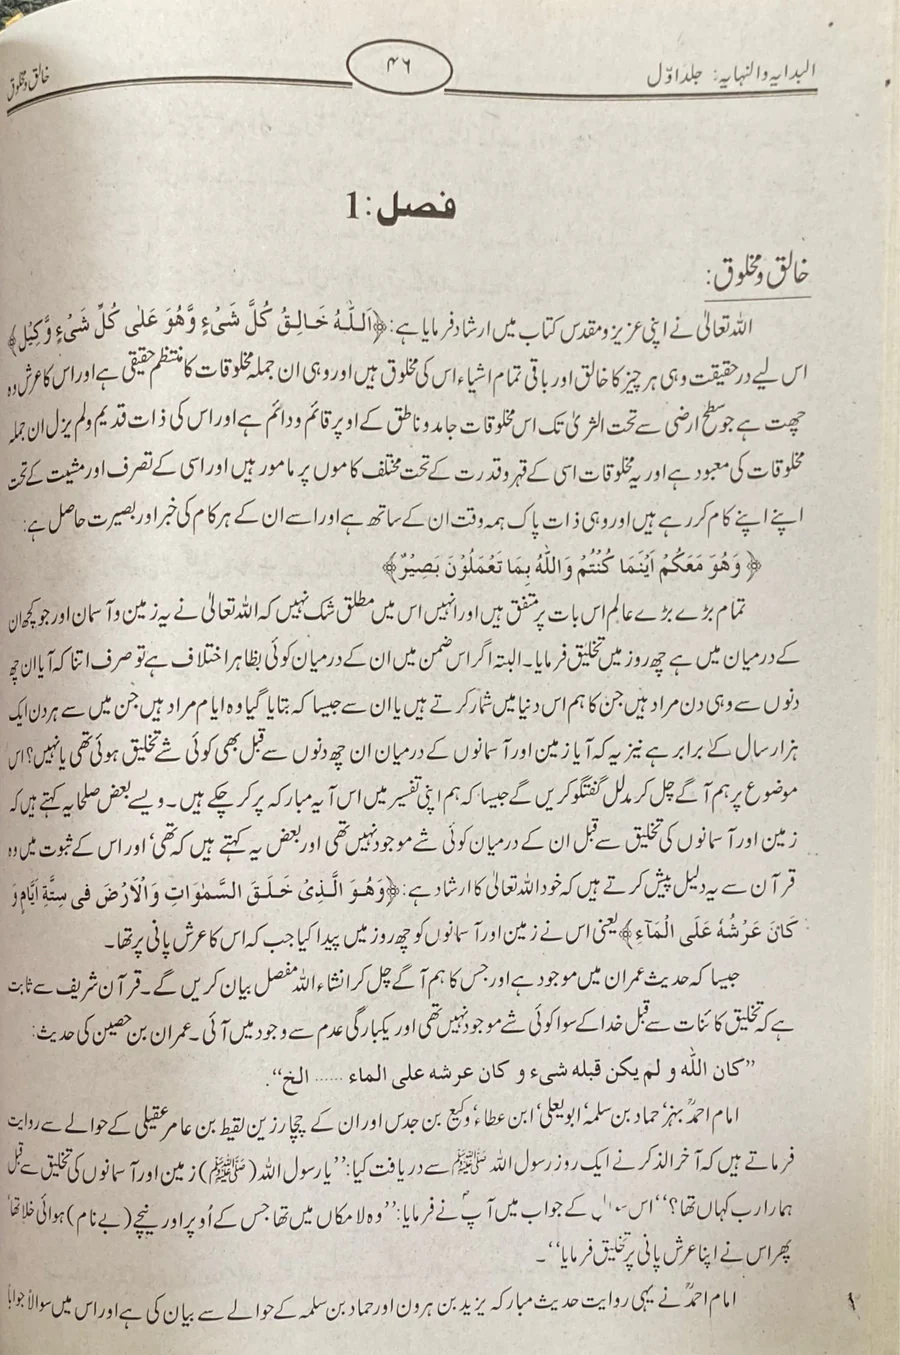 البدایہ والنہایہ: جلد اوّل
۴۶
خالق و مخلوق
فصل: 1
خالق و مخلوق:
اللہ تعالیٰ نے اپنی عزیز و مقدس کتاب میں ارشاد فرمایا ہے: ﴿اَللّٰهُ خَالِقُ كُلَّ شَیْءٍ وَّهُوَ عَلٰى كُلِّ شَیْءٍ وَّكِیْل﴾
اس لیے درحقیقت وہی ہر چیز کا خالق اور باقی تمام اشیاء اس کی مخلوق ہیں اور وہی ان جملہ مخلوقات کا منتظم حقیقی ہے اور اس کا عرش وہ
چھت ہے جو سطح ارضی سے تحت الثریٰ تک اس مخلوقات جامد و ناطق کے اوپر قائم و دائم ہے اور اس کی ذات قدیم و لم یزل ان جملہ
مخلوقات کی معبود ہے اور یہ مخلوقات اسی کے قہر و قدرت کے تحت مختلف کاموں پر مامور ہیں اور اسی کے تصرف اور مشیت کے تحت
اپنے اپنے کام کر رہے ہیں اور وہی ذات پاک ہمہ وقت ان کے ساتھ ہے اور اسے ان کے ہر کام کی خبر اور بصیرت حاصل ہے:
﴿وَهُوَ مَعَكُمْ اَيْنَمَا كُنْتُمْ وَاللّٰهُ بِمَا تَعْمَلُوْنَ بَصِيْرٌ﴾
تمام بڑے بڑے عالم اس بات پر متفق ہیں اور انہیں اس میں مطلق شک نہیں کہ اللہ تعالیٰ نے یہ زمین و آسمان اور جو کچھ ان
کے درمیان میں ہے چھ روز میں تخلیق فرمایا۔ البتہ اگر اس ضمن میں ان کے درمیان کوئی بظاہر اختلاف ہے تو صرف اتنا کہ آیا ان چھ
دنوں سے وہی دن مراد ہیں جن کا ہم اس دنیا میں شمار کرتے ہیں یا ان سے جیسا کہ بتایا گیا وہ ایام مراد ہیں جن میں سے ہر دن ایک
ہزار سال کے برابر ہے نیز یہ کہ آیا زمین اور آسمانوں کے درمیان ان چھ دنوں سے قبل بھی کوئی شے تخلیق ہوئی تھی یا نہیں؟ اس
موضوع پر ہم آگے چل کر مدلل گفتگو کریں گے جیسا کہ ہم اپنی تفسیر میں اس آیہ مبارکہ پر کر چکے ہیں۔ ویسے بعض صلحا یہ کہتے ہیں کہ
زمین اور آسمانوں کی تخلیق سے قبل ان کے درمیان کوئی شے موجود نہیں تھی اور بعض یہ کہتے ہیں کہ تھی' اور اس کے ثبوت میں وہ
قرآن سے یہ دلیل پیش کرتے ہیں کہ خود اللہ تعالیٰ کا ارشاد ہے: ﴿وَهُوَ الَّذِىْ خَلَقَ السَّمٰوَاتِ وَالْاَرْضَ فِى سِتَّةِ اَيَّامٍ وَ
كَانَ عَرْشُهٗ عَلَى الْمَآءِ﴾ یعنی اس نے زمین اور آسمانوں کو چھ روز میں پیدا کیا جب کہ اس کا عرش پانی پر تھا۔
جیسا کہ حدیث عمران میں موجود ہے اور جس کا ہم آگے چل کر انشاء اللہ مفصل بیان کریں گے۔ قرآن شریف سے ثابت
ہے کہ تخلیق کائنات سے قبل خدا کے سوا کوئی شے موجود نہیں تھی اور یکبارگی عدم سے وجود میں آئی۔ عمران بن حصین کی حدیث:
”كان الله و لم يكن قبله شیء و كان عرشه على الماء ...... الخ“.
امام احمدؒ، بہز، حماد بن سلمہ' ابو یعلی' ابن عطاء' وکیع بن حدس اور ان کے چچا رزین لقیط بن عامر عقیلی کے حوالے سے روایت
فرماتے ہیں کہ آخر الذکر نے ایک روز رسول اللہ ﷺ سے دریافت کیا: ”یا رسول اللہ (ﷺ) زمین اور آسمانوں کی تخلیق سے قبل
ہمارا رب کہاں تھا؟“ اس سوال کے جواب میں آپؐ نے فرمایا: ”وہ لامکاں میں تھا جس کے اُوپر اور نیچے (بے نام) ہوائی خلا تھا'
پھر اس نے اپنا عرش پانی پر تخلیق فرمایا“۔
امام احمدؒ نے یہی روایت حدیث مبارکہ یزید بن ہرون اور حماد بن سلمہ کے حوالے سے بیان کی ہے اور اس میں سوالاً جواباً